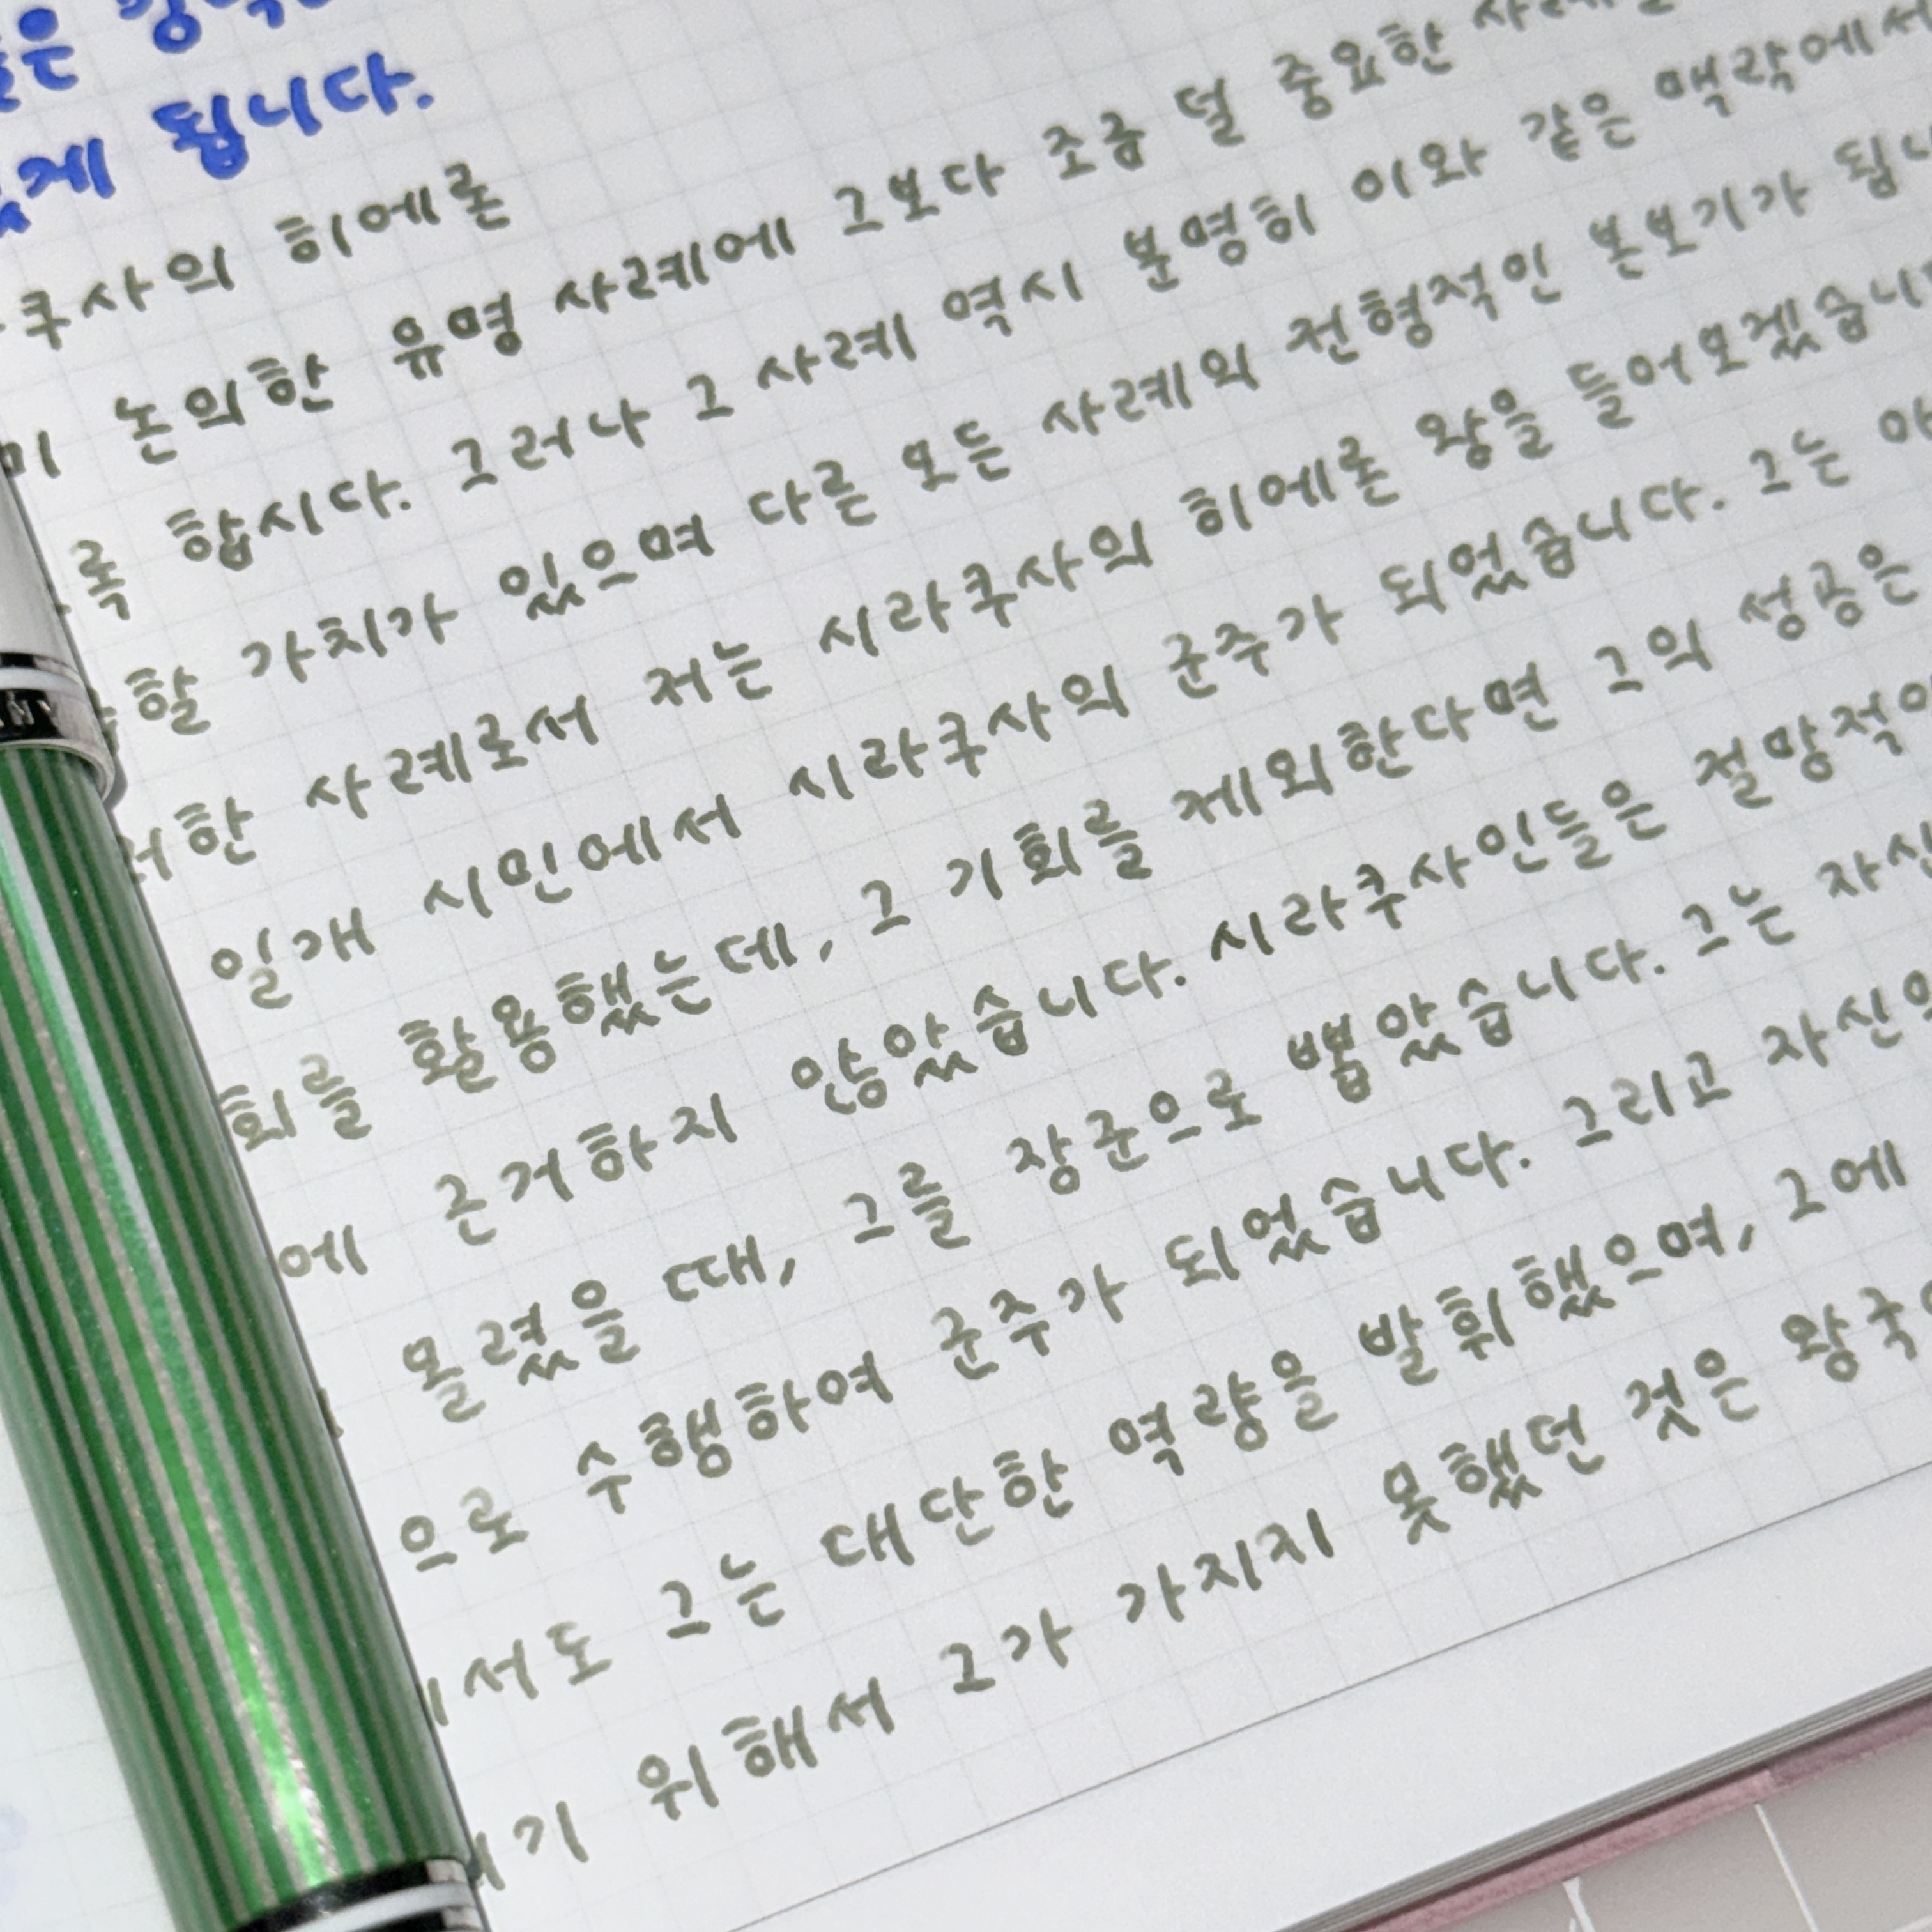 됩니다.
히에론
논의한 유명 사례에 그보다 조금 덜 중요한
합시다. 그러나 그 사례 역시 분명히 이와 같은 맥락에서
가치가 있으며 다른 모든 사례의 전형적인 본보기가
사례로서 저는 시라쿠사의 히에론 왕을
일개 시민에서 시라쿠사의 군주가 되었습니다. 그는
활용했는데, 그 기회를 제외한다면 그의 성공은
근거하지 않았습니다. 시라쿠사인들은
몰렸을 때, 그를 장군으로 뽑았습니다. 그는
수행하여 군주가 되었습니다. 그리고
그는 대단한 역량을 발휘했으며, 그에
위해서 그가 가지지 못했던 것은